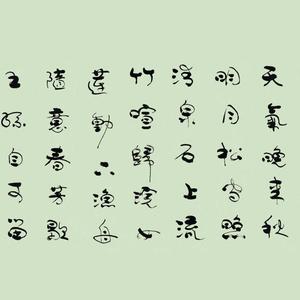 天氣晚來秋
明月松間照
清泉石上流
竹喧歸浣女
蓮動下漁舟
隨意春芳歇
王孫自可留